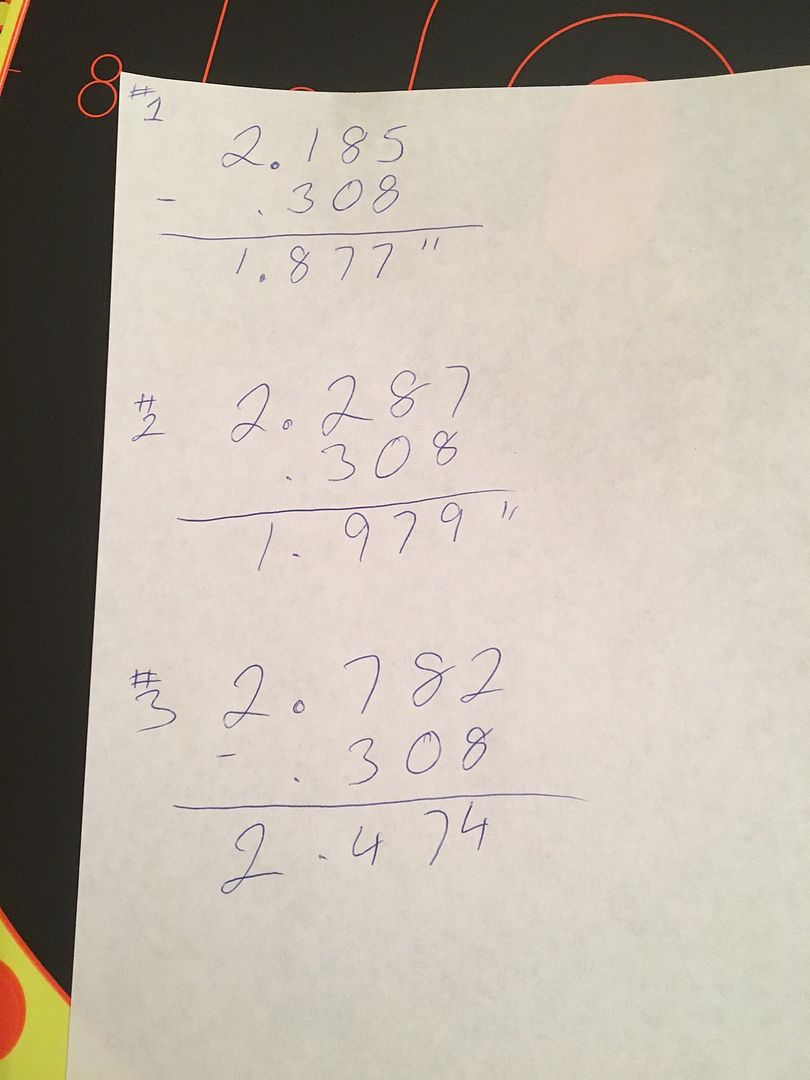 8
#1
2.185
- .308
1.877"
#2
2.287
.308
1.979"
#3
2.782
- .308
2.474